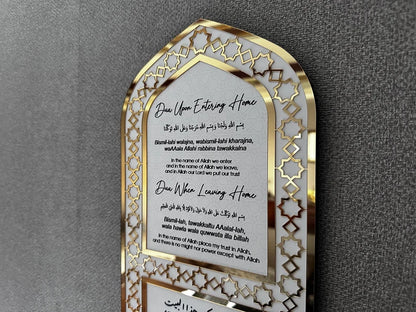 Dua Upon Entering Home
بسم الله ولجنا و بسم الله خرجنا وعلى الله ربنا توكلنا
Bismil-lahi walajna, wabismil-lahi kharajna,
waAAala Allahi rabbina tawakkalna
In the name of Allah we enter
and in the name of Allah we leave,
and in our Lord we put our trust
Dua When Leaving Home
بسم الله توكلت على الله ولا حول ولا قوة إلا بالله
Bismil-lah, tawakkaltu AAalal-lah,
wala hawla wala quwwata illa billah
In the name of Allah place my trust in Allah,
and there is no might nor power except with Allah
هذا البيت